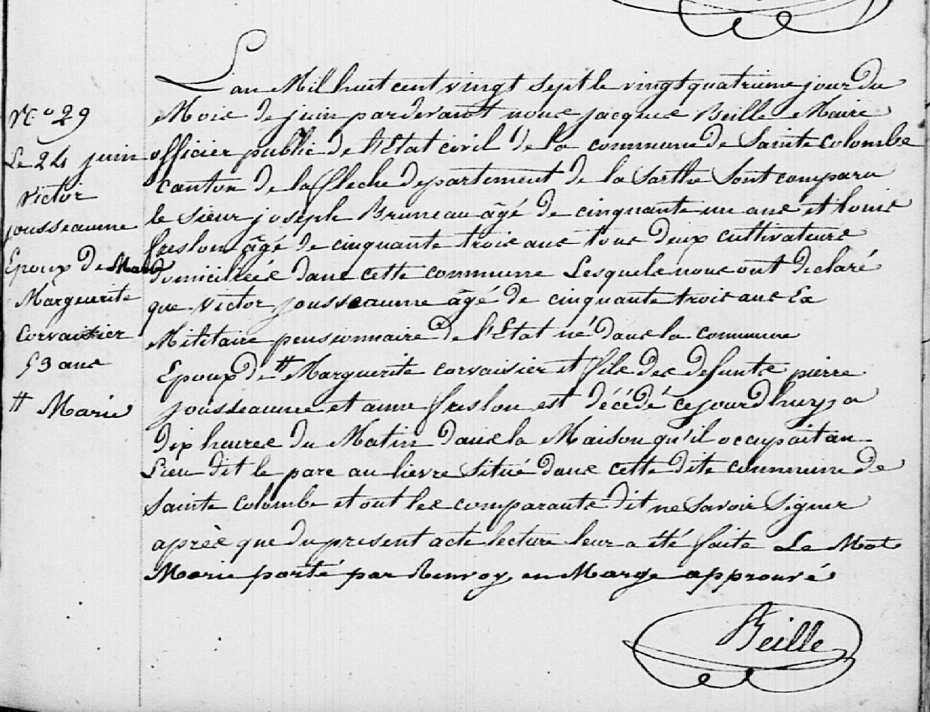 N.o 29
Le 24 juin
Victor
jousseaume
Epoux de
Marguerite
Corvaisier
53 ans
# Marie
L'an Mil huit cent vingt sept le vingt quatrieme jour du
Mois de juin pardevant nous jacques Beille Maire
officier public de l'Etat civil de la commune de Sainte Colombe
canton de la fleche departement de la Sarthe Sont comparu
le Sieur joseph Bruneau âgé de cinquante un ans et louis
freslon âgé de cinquante trois ans tous deux cultivateurs
domiciliés dans cette commune Lesquels nous ont declaré
que Victor jousseaume âgé de cinquante trois ans Ex
Militaire pensionnaire de l'Etat né dans la commune
Epoux de # Marguerite corvaisier et fils des defunts pierre
jousseaume et anne freslon est décédé cejourd'huy a
dix heures du Matin dans la Maison qu'il occupait au
Lieu dit le parc au lievre situé dans cette dite commune de
Sainte Colombe et ont les comparants dit ne Savoir Signer
après que du present acte lecture leur a été faite Le Mot
Marie porté par Renvoy en Marge approuvé
Beille